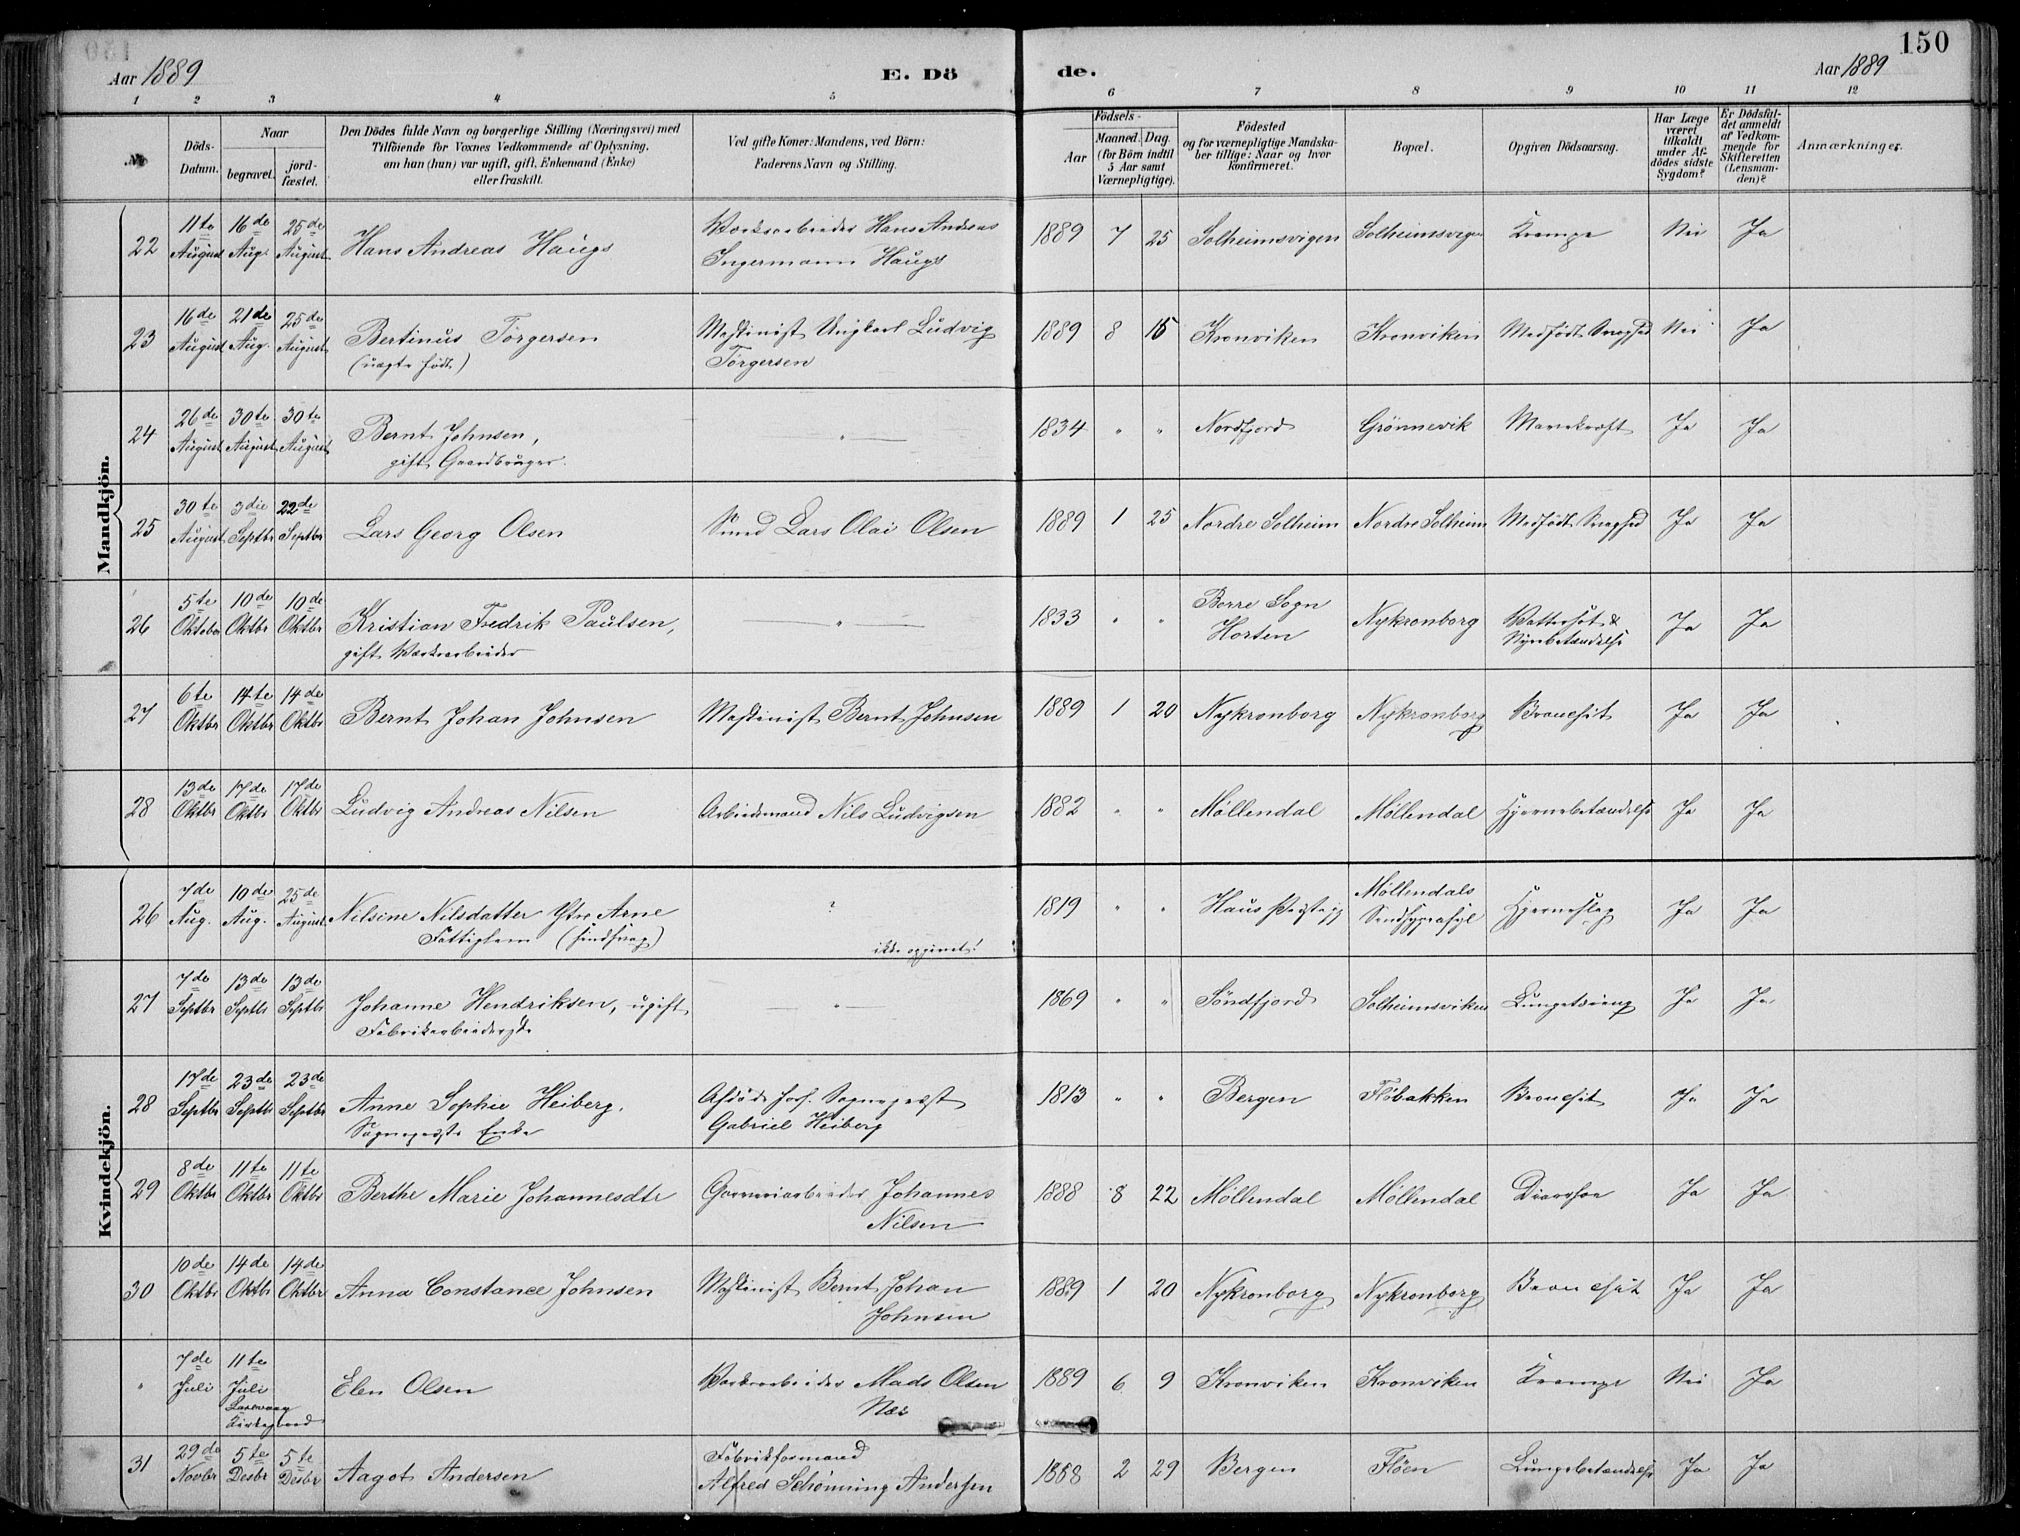 150
Aar 1889
E. Dö
de.
Aar 1889
1 2 3 4 5 6 7 8 9 10 11 12
No
Döds-
Datum.
Naar
begravet.
jord-
fæstet.
Den Dödes fulde Navn og borgerlige Stilling (Næringsvei) med
Tilföiende for Voxnes Vedkommende af Oplysning,
om han (hun) var ugift, gift, Enkemand (Enke)
eller fraskilt.
Ved gifte Koner: Mandens, ved Börn:
Faderens Navn og Stilling.
Födsels-
Aar
Maaned. Dag.
(for Börn indtil
5 Aar samt
Værnepligtige).
Födested
og for værnepligtige Mandska-
ber tillige: Naar og hvor
konfirmeret.
Bopæl.
Opgiven Dödsaarsag.
Har Læge
været
tilkaldt
under Af-
dödes sidste
Sygdom?
Er Dödsfal-
det anmeldt
af Vedkom-
mende for
Skifteretten
(Lensman-
den)?
Anmærkninger.
Mandkjön.
22 11te August 16de Aug. 25de August Hans Andreas Haugs Værksarbeider Hans Andreas Ingermann Haugs 1889 7 25 Solheimsvigen Solheimsvigen Krampe Nei Ja
23 16de August 21de Aug. 25de August Bertinus Torgersen (uægte født) Maskinist Ungkarl Ludvig Torgersen 1889 8 15 Kronviken Kronviken Medfödt Svaghed Nei Ja
24 26de August 30te August 30te August Bernt Johnsen, gift Gaardbruger. " 1834 " " Nordfjord Grönnevik Mavekræft Ja Ja
25 30te August 3die Septbr 22de Septbr Lars Georg Olsen Smed Lars Olai Olsen 1889 1 25 Nordre Solheim Nordre Solheim Medfödt Svaghed Ja Ja
26 5te Oktober 10de Oktbr 10de Oktbr Kristian Fredrik Paulsen, gift Værksarbeider " 1833 " " Borre Sogn Horten Nykronborg Vattersot & Nyrebetændelse Ja Ja
27 6te Oktbr 14te Oktbr 14de Oktbr Bernt Johan Johnsen Maskinist Bernt Johnsen 1889 1 20 Nykronborg Nykronborg Bronchit Ja Ja
28 13de Oktbr 17de Oktbr 17de Oktbr Ludvig Andreas Nilsen Arbeidsmand Nils Ludvigsen 1882 " " Møllendal Møllendal Hjernebetændelse Ja Ja
Kvindekjön.
26 7de Aug. 10de Aug. 25de August Nilsine Nilsdatter Ytre Arne Fattiglem (sindssvag) ? ikke opgivet! 1819 " " Haus Møllendals Sindssygeasyl Hjerneslag Ja Ja
27 7de Septbr 13de Septbr 13de Septbr Johanne Hendriksen, ugift Fabrikarbeiderske " 1869 " " Söndfjord Solheimsviken Lungetæring Ja Ja
28 17de Septbr 23de Septbr 23de Septbr Anne Sophie Heiberg, Sognepræsts Enke Afdöde Sognepræst Gabriel Heiberg 1813 " " Bergen Flöbakken Bronchit Ja Ja
29 8de Oktbr 11te Oktbr 11te Oktbr Berthe Marie Johannesdtr Garveriarbeider Johannes Nilsen 1888 8 22 Møllendal Møllendal Diarrhoe Ja Ja
30 10de Oktbr 14de Oktbr 14de Oktbr Anna Constance Johnsen Maskinist Bernt Johan Johnsen 1889 1 20 Nykronborg Nykronborg Bronchit Ja Ja
" 7de Juli 11te Juli Laxevaag Kirkegaard Elen Olsen Værksarbeider Mads Olsen Næs 1889 6 9 Kronviken Kronviken Krampe Nei Ja
31 29de Novbr 5te Desbr 5te Desbr Aagot Andersen Fabrikformand Alfred Schönning Andersen 1888 2 29 Bergen Flöen Lungebetændelse Ja Ja